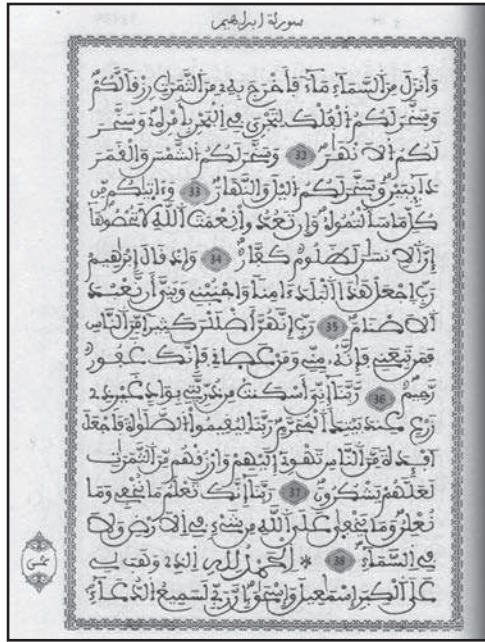 سورة إبراهيم
وَأَنزَلَ مِنَ اَلسَّمَآءِ مَآءً فَأَخْرَجَ بِهِۦ مِنَ اَلثَّمَرَٰتِ رِزْقاً لَّكُمْ
وَسَخَّرَ لَكُمُ اَلْفُلْكَ لِتَجْرِيَ فِي اِلْبَحْرِ بِأَمْرِهِۦ وَسَخَّرَ
لَكُمُ اَلَانْهَٰرَ 32 وَسَخَّرَ لَكُمُ اَلشَّمْسَ وَالْقَمَرَ
دَآئِبَيْنِ وَسَخَّرَ لَكُمُ اَليْلَ وَالنَّهَارَ 33 وَءَاتَيٰكُم مِّن
كُلِّ مَا سَأَلْتُمُوهُ وَإِن تَعُدُّواْ نِعْمَتَ اَللَّهِ لَا تُحْصُوهَآ
إِنَّ اَلِانسَٰنَ لَظَلُومٌ كَفَّارٌ 34 وَإِذْ قَالَ إِبْرَٰهِيمُ
رَبِّ اِجْعَلْ هَٰذَا اَلْبَلَدَ ءَامِناً وَاجْنُبْنِي وَبَنِيَّ أَن نَّعْبُدَ
اَلَاصْنَامَ 35 رَبِّ إِنَّهُنَّ أَضْلَلْنَ كَثِيراً مِّنَ اَلنَّاسِ
فَمَن تَبِعَنِي فَإِنَّهُۥ مِنِّي وَمَنْ عَصَانِي فَإِنَّكَ غَفُورٌ
رَّحِيمٌ 36 رَّبَّنَآ إِنِّيَ أَسْكَنتُ مِن ذُرِّيَّتِي بِوَادٍ غَيْرِ ذِي
زَرْعٍ عِندَ بَيْتِكَ اَلْمُحَرَّمِ رَبَّنَا لِيُقِيمُواْ اُلصَّلَوٰةَ فَاجْعَلَ
اَفْـِٕدَةً مِّنَ اَلنَّاسِ تَهْوِيٓ إِلَيْهِمْ وَارْزُقْهُم مِّنَ اَلثَّمَرَٰتِ
لَعَلَّهُمْ يَشْكُرُونَ 37 رَبَّنَآ إِنَّكَ تَعْلَمُ مَا نُخْفِي وَمَا
نُعْلِنُ وَمَا يَخْفَىٰ عَلَى اَللَّهِ مِن شَيْءٍ فِي اِلَارْضِ وَلَا
فِي اِلسَّمَآءِ 38 * اِلْحَمْدُ لِلهِ اِلذِي وَهَبَ لِي
عَلَى اَلْكِبَرِ إِسْمَٰعِيلَ وَإِسْحَٰقَ إِنَّ رَبِّي لَسَمِيعُ اُلدُّعَآءِ
ثمن